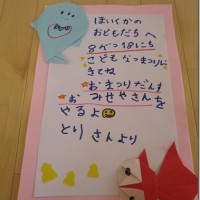 ほいくかの
おともだちへ
8がつ18にち
こどもなつまつりに
きてね
おまつりだんす
おみせやさんを
やるよ
とりさんより